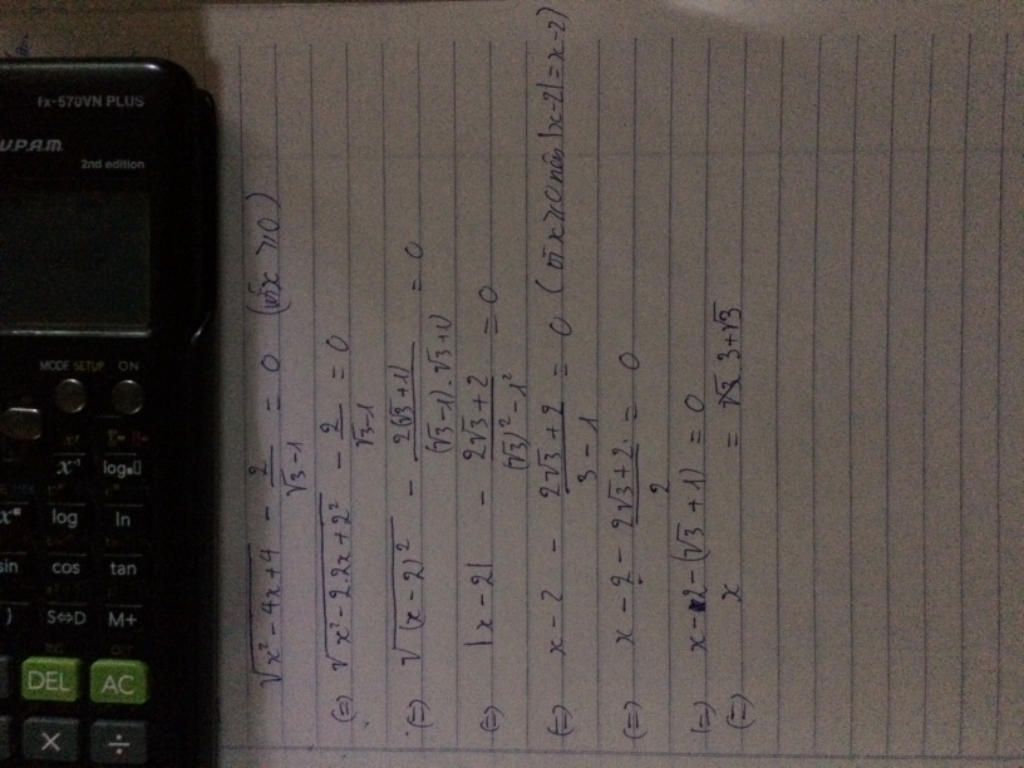 fx-570VN PLUS
V.P.A.M.
2nd edition
MODE SETUP ON
x⁻¹ log□
log ln
sin cos tan
) S⇔D M+
DEL AC
× ÷
√(x² - 4x + 4) - 2/(√3 - 1) = 0 (với x ≥ 0)
(=) √(x² - 2.2x + 2²) - 2/(√3 - 1) = 0
(=) √((x - 2)²) - 2(√3 + 1)/((√3 - 1).√3 + 1) = 0
(=) |x - 2| - (2√3 + 2)/((√3)² - 1²) = 0
(=) x - 2 - (2√3 + 2)/(3 - 1) = 0 (vì x ≥ 0 nên |x - 2| = x - 2)
(=) x - 2 - (2√3 + 2)/2 = 0
(=) x - 2 - (√3 + 1) = 0
(=) x = 3 + √3